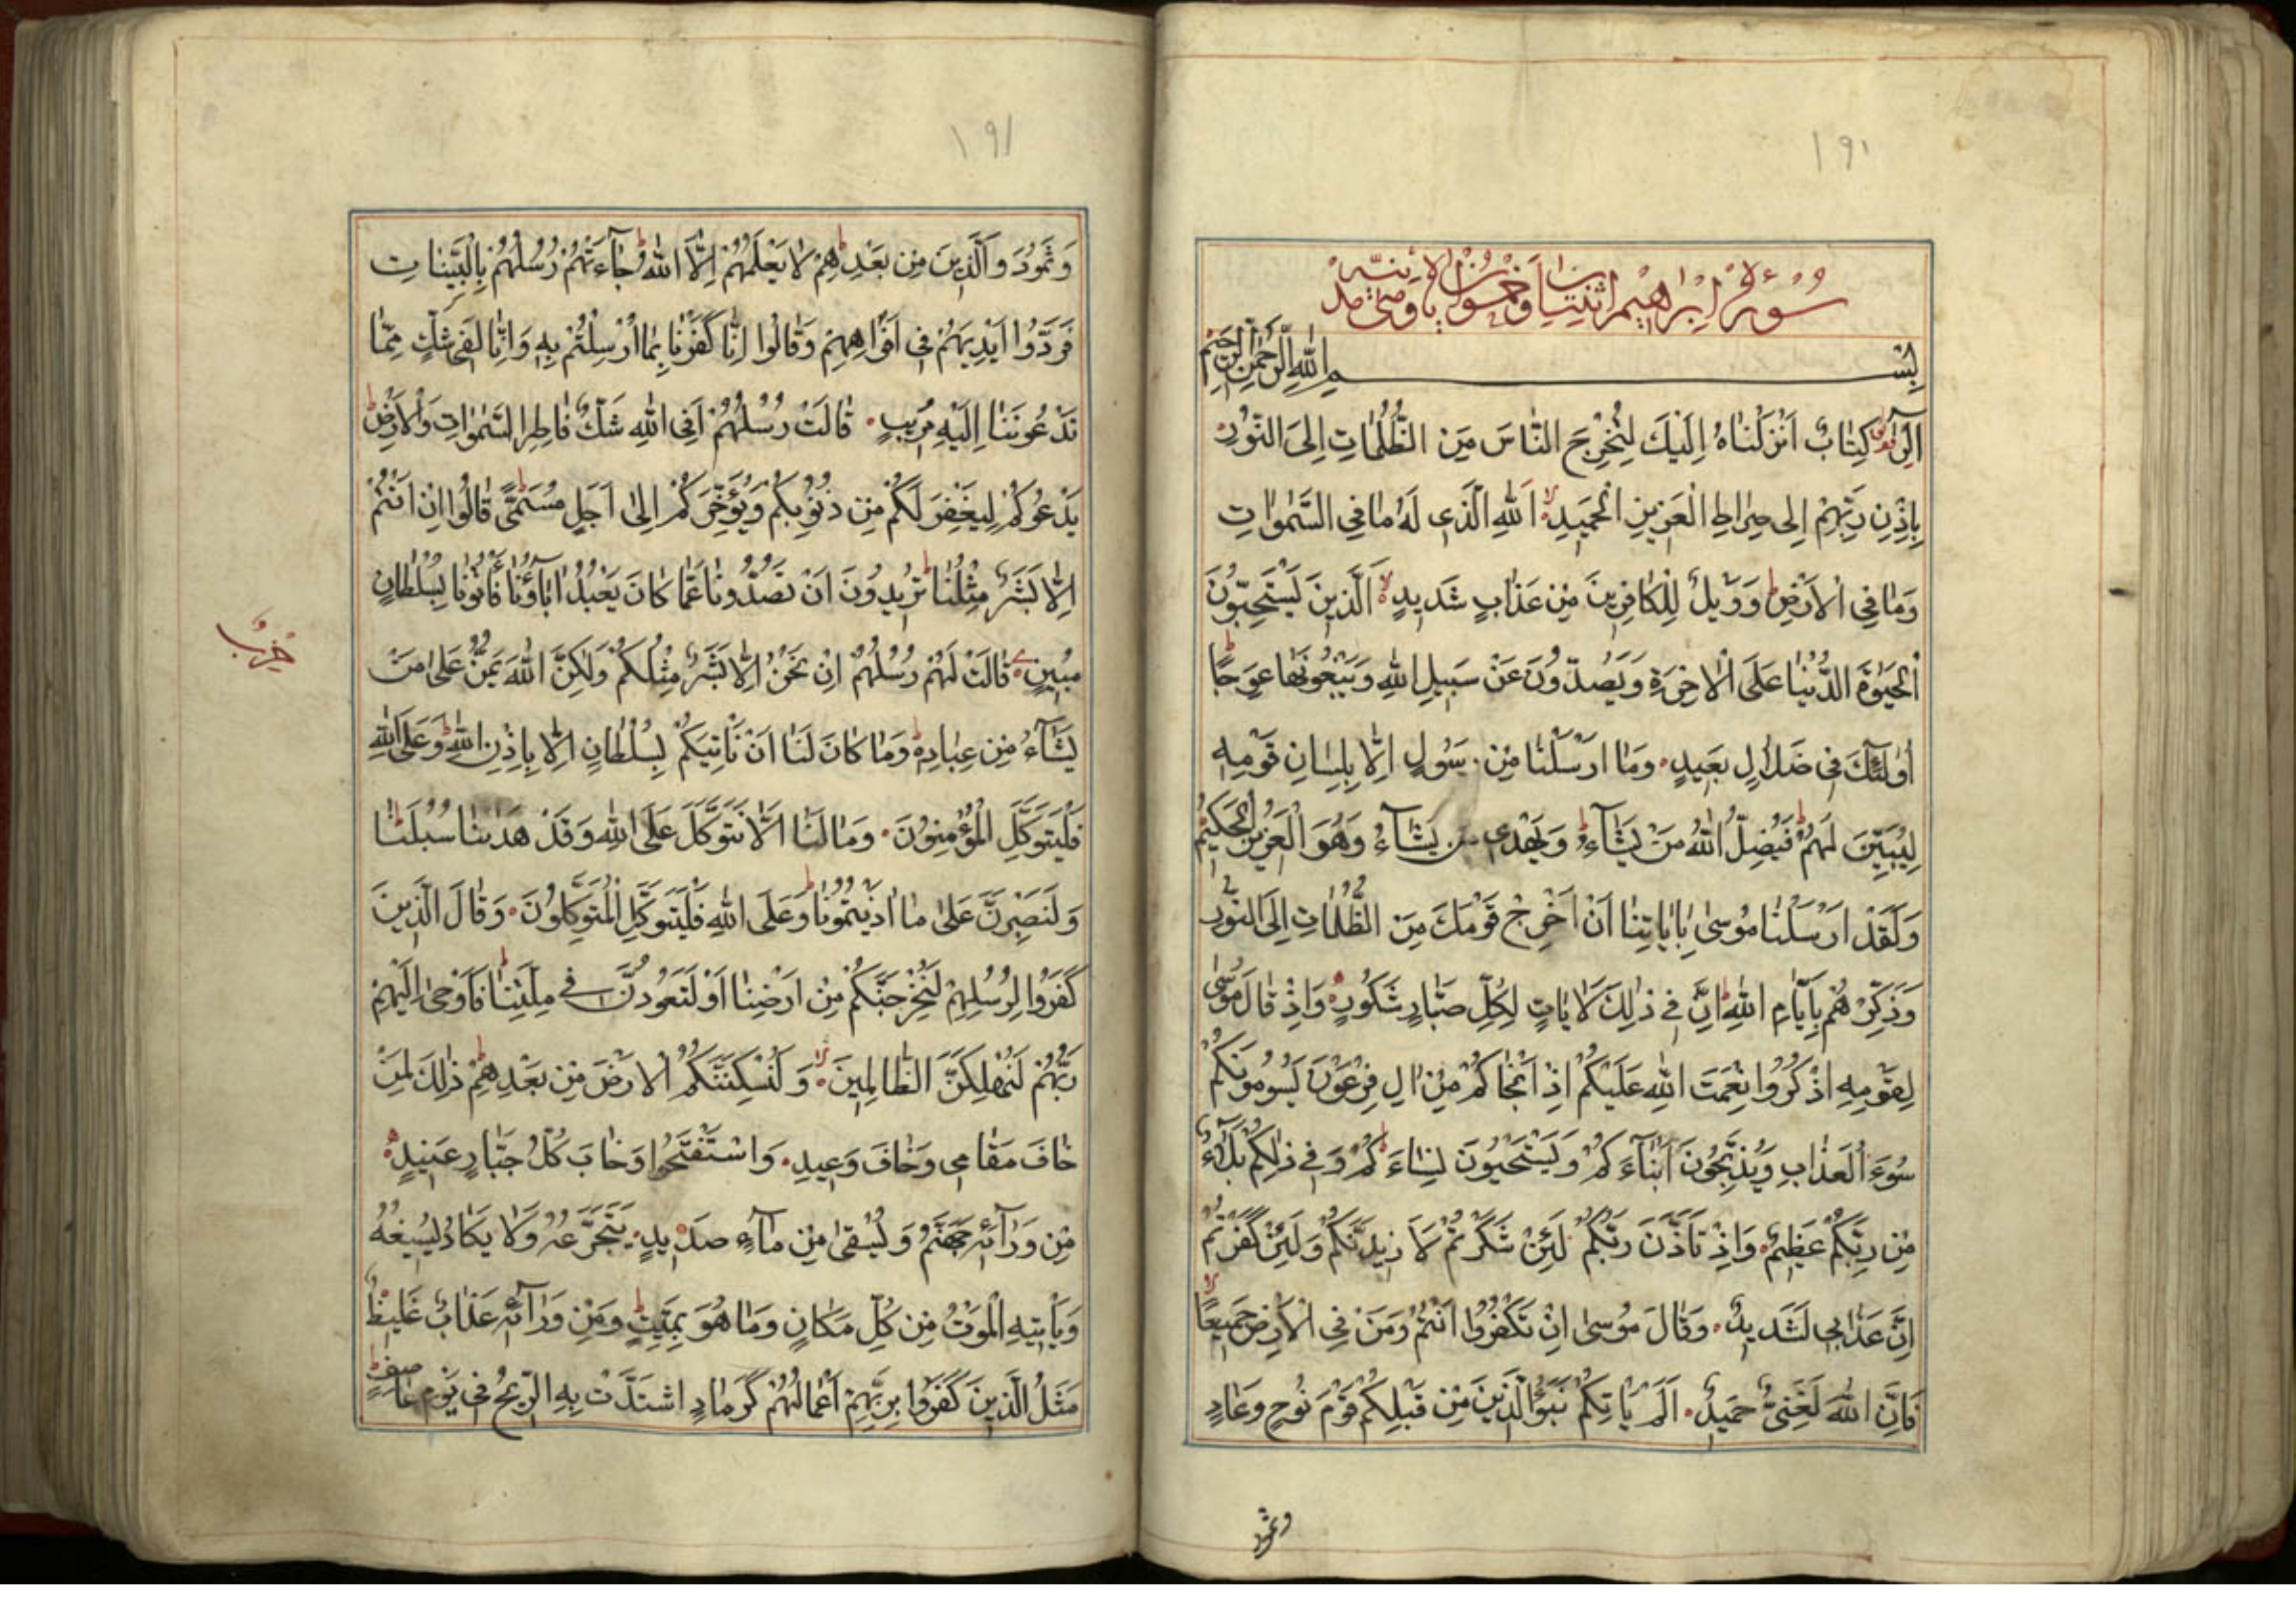 ١٩١
سُورَةُ اِبْرٰهِيمَ اثْنَتَانِ وَخَمْسُونَ اٰيَةً
بِسْمِ اللّٰهِ الرَّحْمٰنِ الرَّحِيمِ
الٓرٰ كِتَابٌ اَنْزَلْنَاهُ اِلَيْكَ لِتُخْرِجَ النَّاسَ مِنَ الظُّلُمَاتِ اِلَى النُّورِ
بِاِذْنِ رَبِّهِمْ اِلٰى صِرَاطِ الْعَزِيزِ الْحَمِيدِ اَللّٰهِ الَّذِى لَهُ مَا فِى السَّمٰوَاتِ
وَمَا فِى الْاَرْضِ وَوَيْلٌ لِلْكَافِرِينَ مِنْ عَذَابٍ شَدِيدٍ اَلَّذِينَ يَسْتَحِبُّونَ
الْحَيٰوةَ الدُّنْيَا عَلَى الْاٰخِرَةِ وَيَصُدُّونَ عَنْ سَبِيلِ اللّٰهِ وَيَبْغُونَهَا عِوَجًا
اُولٰئِكَ فِى ضَلَالٍ بَعِيدٍ وَمَا اَرْسَلْنَا مِنْ رَسُولٍ اِلَّا بِلِسَانِ قَوْمِهِ
لِيُبَيِّنَ لَهُمْ فَيُضِلُّ اللّٰهُ مَنْ يَشَٓاءُ وَيَهْدِى مَنْ يَشَٓاءُ وَهُوَ الْعَزِيزُ الْحَكِيمُ
وَلَقَدْ اَرْسَلْنَا مُوسٰى بِاٰيَاتِنَا اَنْ اَخْرِجْ قَوْمَكَ مِنَ الظُّلُمَاتِ اِلَى النُّورِ
وَذَكِّرْهُمْ بِاَيَّامِ اللّٰهِ اِنَّ فِى ذٰلِكَ لَاٰيَاتٍ لِكُلِّ صَبَّارٍ شَكُورٍ وَاِذْ قَالَ مُوسٰى
لِقَوْمِهِ اذْكُرُوا نِعْمَتَ اللّٰهِ عَلَيْكُمْ اِذْ اَنْجَاكُمْ مِنْ اٰلِ فِرْعَوْنَ يَسُومُونَكُمْ
سُوءَ الْعَذَابِ وَيُذَبِّحُونَ اَبْنَٓاءَكُمْ وَيَسْتَحْيُونَ نِسَٓاءَكُمْ وَفِى ذٰلِكُمْ بَلَٓاءٌ
مِنْ رَبِّكُمْ عَظِيمٌ وَاِذْ تَاَذَّنَ رَبُّكُمْ لَئِنْ شَكَرْتُمْ لَاَزِيدَنَّكُمْ وَلَئِنْ كَفَرْتُمْ
اِنَّ عَذَابِى لَشَدِيدٌ وَقَالَ مُوسٰى اِنْ تَكْفُرُوا اَنْتُمْ وَمَنْ فِى الْاَرْضِ جَمِيعًا
فَاِنَّ اللّٰهَ لَغَنِىٌّ حَمِيدٌ اَلَمْ يَاْتِكُمْ نَبَؤُا الَّذِينَ مِنْ قَبْلِكُمْ قَوْمِ نُوحٍ وَعَادٍ
وثمود
١٩١
وَثَمُودَ وَالَّذِينَ مِنْ بَعْدِهِمْ لَا يَعْلَمُهُمْ اِلَّا اللّٰهُ جَٓاءَتْهُمْ رُسُلُهُمْ بِالْبَيِّنَاتِ
فَرَدُّوا اَيْدِيَهُمْ فِى اَفْوَاهِهِمْ وَقَالُوا اِنَّا كَفَرْنَا بِمَا اُرْسِلْتُمْ بِهِ وَاِنَّا لَفِى شَكٍّ مِمَّا
تَدْعُونَنَا اِلَيْهِ مُرِيبٍ قَالَتْ رُسُلُهُمْ اَفِى اللّٰهِ شَكٌّ فَاطِرِ السَّمٰوَاتِ وَالْاَرْضِ
يَدْعُوكُمْ لِيَغْفِرَ لَكُمْ مِنْ ذُنُوبِكُمْ وَيُؤَخِّرَكُمْ اِلٰى اَجَلٍ مُسَمًّى قَالُوا اِنْ اَنْتُمْ
اِلَّا بَشَرٌ مِثْلُنَا تُرِيدُونَ اَنْ تَصُدُّونَا عَمَّا كَانَ يَعْبُدُ اٰبَٓاؤُنَا فَاْتُونَا بِسُلْطَانٍ
مُبِينٍ قَالَتْ لَهُمْ رُسُلُهُمْ اِنْ نَحْنُ اِلَّا بَشَرٌ مِثْلُكُمْ وَلٰكِنَّ اللّٰهَ يَمُنُّ عَلٰى مَنْ
حِزْبٌ
يَشَٓاءُ مِنْ عِبَادِهِ وَمَا كَانَ لَنَا اَنْ نَاْتِيَكُمْ بِسُلْطَانٍ اِلَّا بِاِذْنِ اللّٰهِ وَعَلَى اللّٰهِ
فَلْيَتَوَكَّلِ الْمُؤْمِنُونَ وَمَا لَنَا اَلَّا نَتَوَكَّلَ عَلَى اللّٰهِ وَقَدْ هَدٰينَا سُبُلَنَا
وَلَنَصْبِرَنَّ عَلٰى مَا اٰذَيْتُمُونَا وَعَلَى اللّٰهِ فَلْيَتَوَكَّلِ الْمُتَوَكِّلُونَ وَقَالَ الَّذِينَ
كَفَرُوا لِرُسُلِهِمْ لَنُخْرِجَنَّكُمْ مِنْ اَرْضِنَا اَوْ لَتَعُودُنَّ فِى مِلَّتِنَا فَاَوْحٰى اِلَيْهِمْ
رَبُّهُمْ لَنُهْلِكَنَّ الظَّالِمِينَ وَلَنُسْكِنَنَّكُمُ الْاَرْضَ مِنْ بَعْدِهِمْ ذٰلِكَ لِمَنْ
خَافَ مَقَامِى وَخَافَ وَعِيدِ وَاسْتَفْتَحُوا وَخَابَ كُلُّ جَبَّارٍ عَنِيدٍ
مِنْ وَرَٓائِهِ جَهَنَّمُ وَيُسْقٰى مِنْ مَٓاءٍ صَدِيدٍ يَتَجَرَّعُهُ وَلَا يَكَادُ يُسِيغُهُ
وَيَاْتِيهِ الْمَوْتُ مِنْ كُلِّ مَكَانٍ وَمَا هُوَ بِمَيِّتٍ وَمِنْ وَرَٓائِهِ عَذَابٌ غَلِيظٌ
مَثَلُ الَّذِينَ كَفَرُوا بِرَبِّهِمْ اَعْمَالُهُمْ كَرَمَادٍ اشْتَدَّتْ بِهِ الرِّيحُ فِى يَوْمٍ عَاصِفٍ